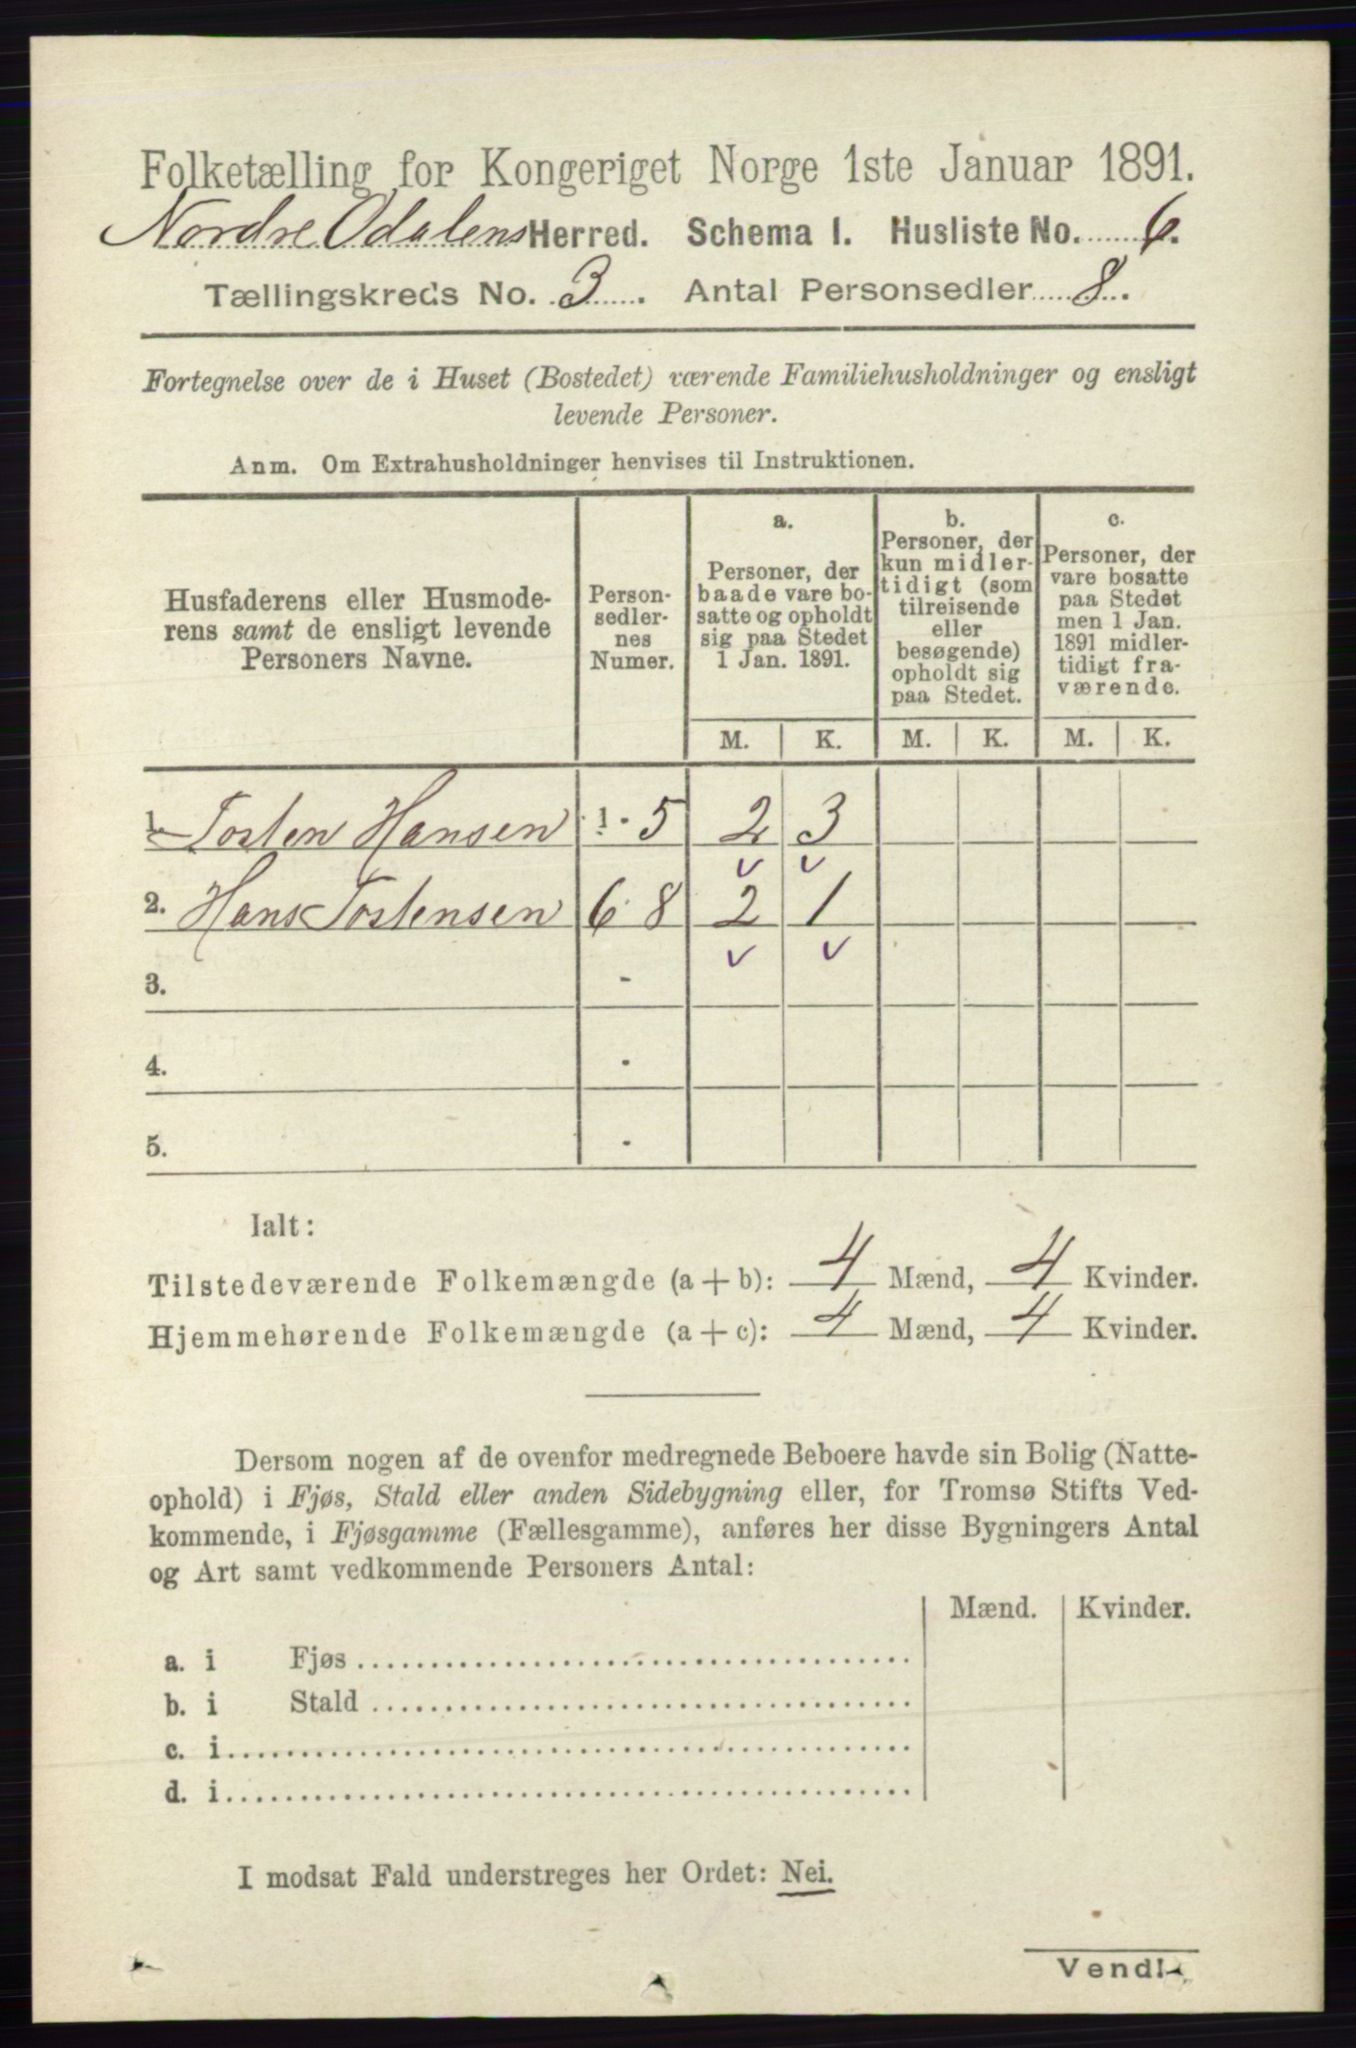 Folketælling for Kongeriget Norge 1ste Januar 1891.
Nordre Odalens Herred. Schema I. Husliste No. 6.
Tællingskreds No. 3. Antal Personsedler 8.
Fortegnelse over de i Huset (Bostedet) værende Familiehusholdninger og ensligt
levende Personer.
Anm. Om Extrahusholdninger henvises til Instruktionen.
Husfaderens eller Husmode-
rens samt de ensligt levende
Personers Navne.
Person-
sedler-
nes
Numer.
a.
Personer, der
baade vare bo-
satte og opholdt
sig paa Stedet
1 Jan. 1891.
b.
Personer, der
kun midler-
tidigt (som
tilreisende
eller
besøgende)
opholdt sig
paa Stedet.
c.
Personer, der
vare bosatte
paa Stedet
men 1 Jan.
1891 midler-
tidigt fra-
værende.
M. K. M. K. M. K.
1. Tosten Hansen 1 - 5 2 3
2. Hans Tostensen 6 - 8 2 1
3. -
4. -
5. -
Ialt:
Tilstedeværende Folkemængde (a + b): 4 Mænd, 4 Kvinder.
Hjemmehørende Folkemængde (a + c): 4 Mænd, 4 Kvinder.
Dersom nogen af de ovenfor medregnede Beboere havde sin Bolig (Natte-
ophold) i Fjøs, Stald eller anden Sidebygning eller, for Tromsø Stifts Ved-
kommende, i Fjøsgamme (Fællesgamme), anføres her disse Bygningers Antal
og Art samt vedkommende Personers Antal:
Mænd. Kvinder.
a. i Fjøs
b. i Stald
c. i
d. i
I modsat Fald understreges her Ordet: Nei.
Vend!